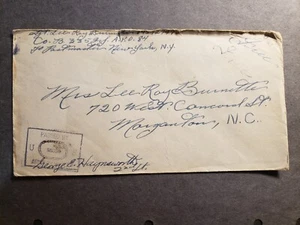 Sgt Lee Roy Burnette
Co. B 335 Inf. A.P.O. 84
% Postmaster New York, N.Y.
Mrs Lee Roy Burnette
720 West Concord St
Morganton, N.C.
PASSED BY
U
George C. Haynsworth
2nd Lt.